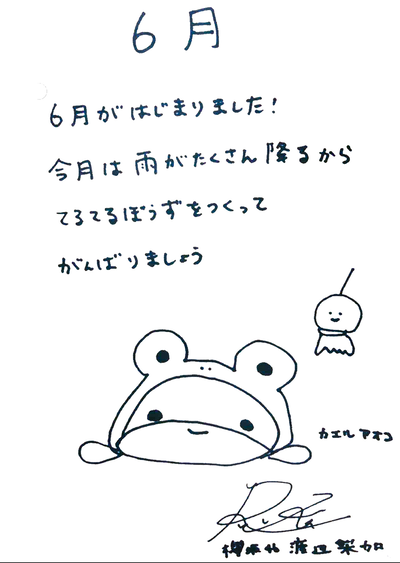 6月
6月がはじまりました!
今月は雨がたくさん降るから
てるてるぼうずをつくって
がんばりましょう
カエルアオコ
櫻坂46 渡辺梨加